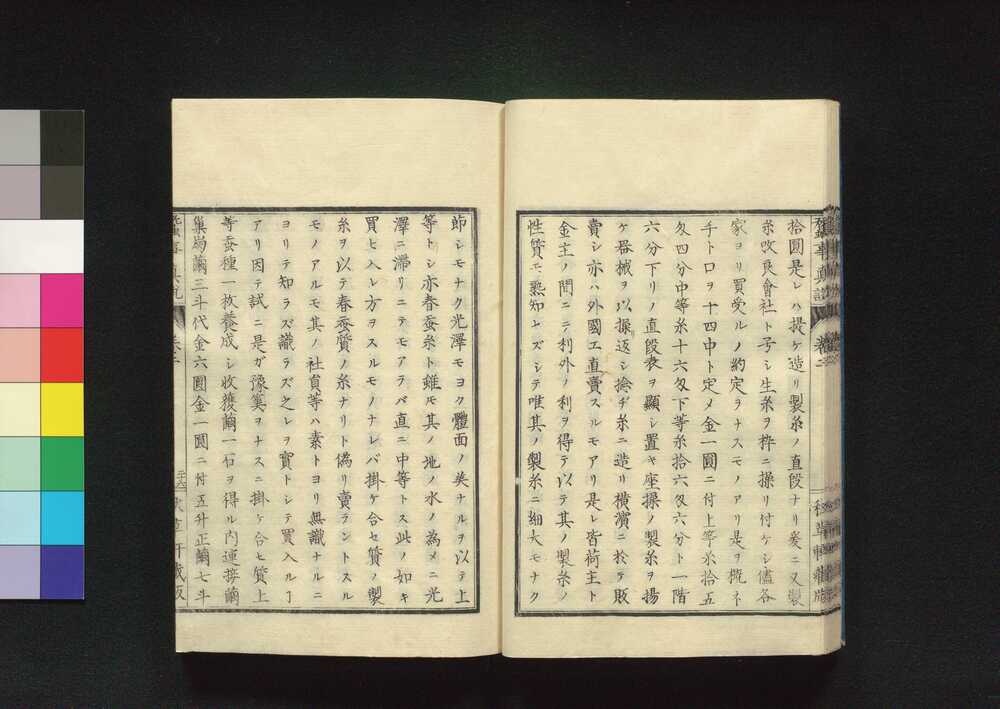 蚕事真説
卷二
拾圓是レハ提ケ造リ製糸ノ直段ナリ爰ニ又製
糸改良會社ト号シ生糸ヲ枠ニ操リ付ケシ儘各
家ヨリ買受ルノ約定ヲナスモノアリ是ヲ概ネ
千トロヲ十四中ト定メ金一圓ニ付上等糸拾五
匁四分中等糸十六匁下等糸拾六匁六分ト一階
六分下リノ直段表ヲ顯シ置キ座操ノ製糸ヲ揚
ケ器械ヲ以操返シ捻ヂ糸ニ造リ横濱ニ於テ販
賣シ亦ハ外國エ直賣スルモアリ是レ皆荷主ト
金主ノ間ニテ利外ノ利ヲ得テ以テ其ノ製糸ノ
性質モ熟知セズシテ唯其ノ製糸ニ細大モナク
節シモナク光澤モヨク體面ノ美ナルヲ以テ上
等トシ亦春蚕糸ト雖モ其ノ地ノ水ノ為メニ光
澤ニ滞リニテモアラバ直ニ中等トス此ノ如キ
買ヒ入レ方ヲスルモノナレバ掛ケ合セ質ノ製
糸ヲ以テ春蚕質ノ糸ナリト偽リ賣ラントスル
モノアルモ其ノ社員等ハ素トヨリ無識ナルニ
ヨリテ知ラズ識ラズ之レヲ實トシテ買入ルヿ
アリ因テ試ニ是ガ豫算ヲナスニ掛ケ合セ質上
等蚕種一枚養成シ收獲繭一石ヲ得ル内運接繭
巣局繭三斗代金六圓金一圓ニ付五升正繭七斗